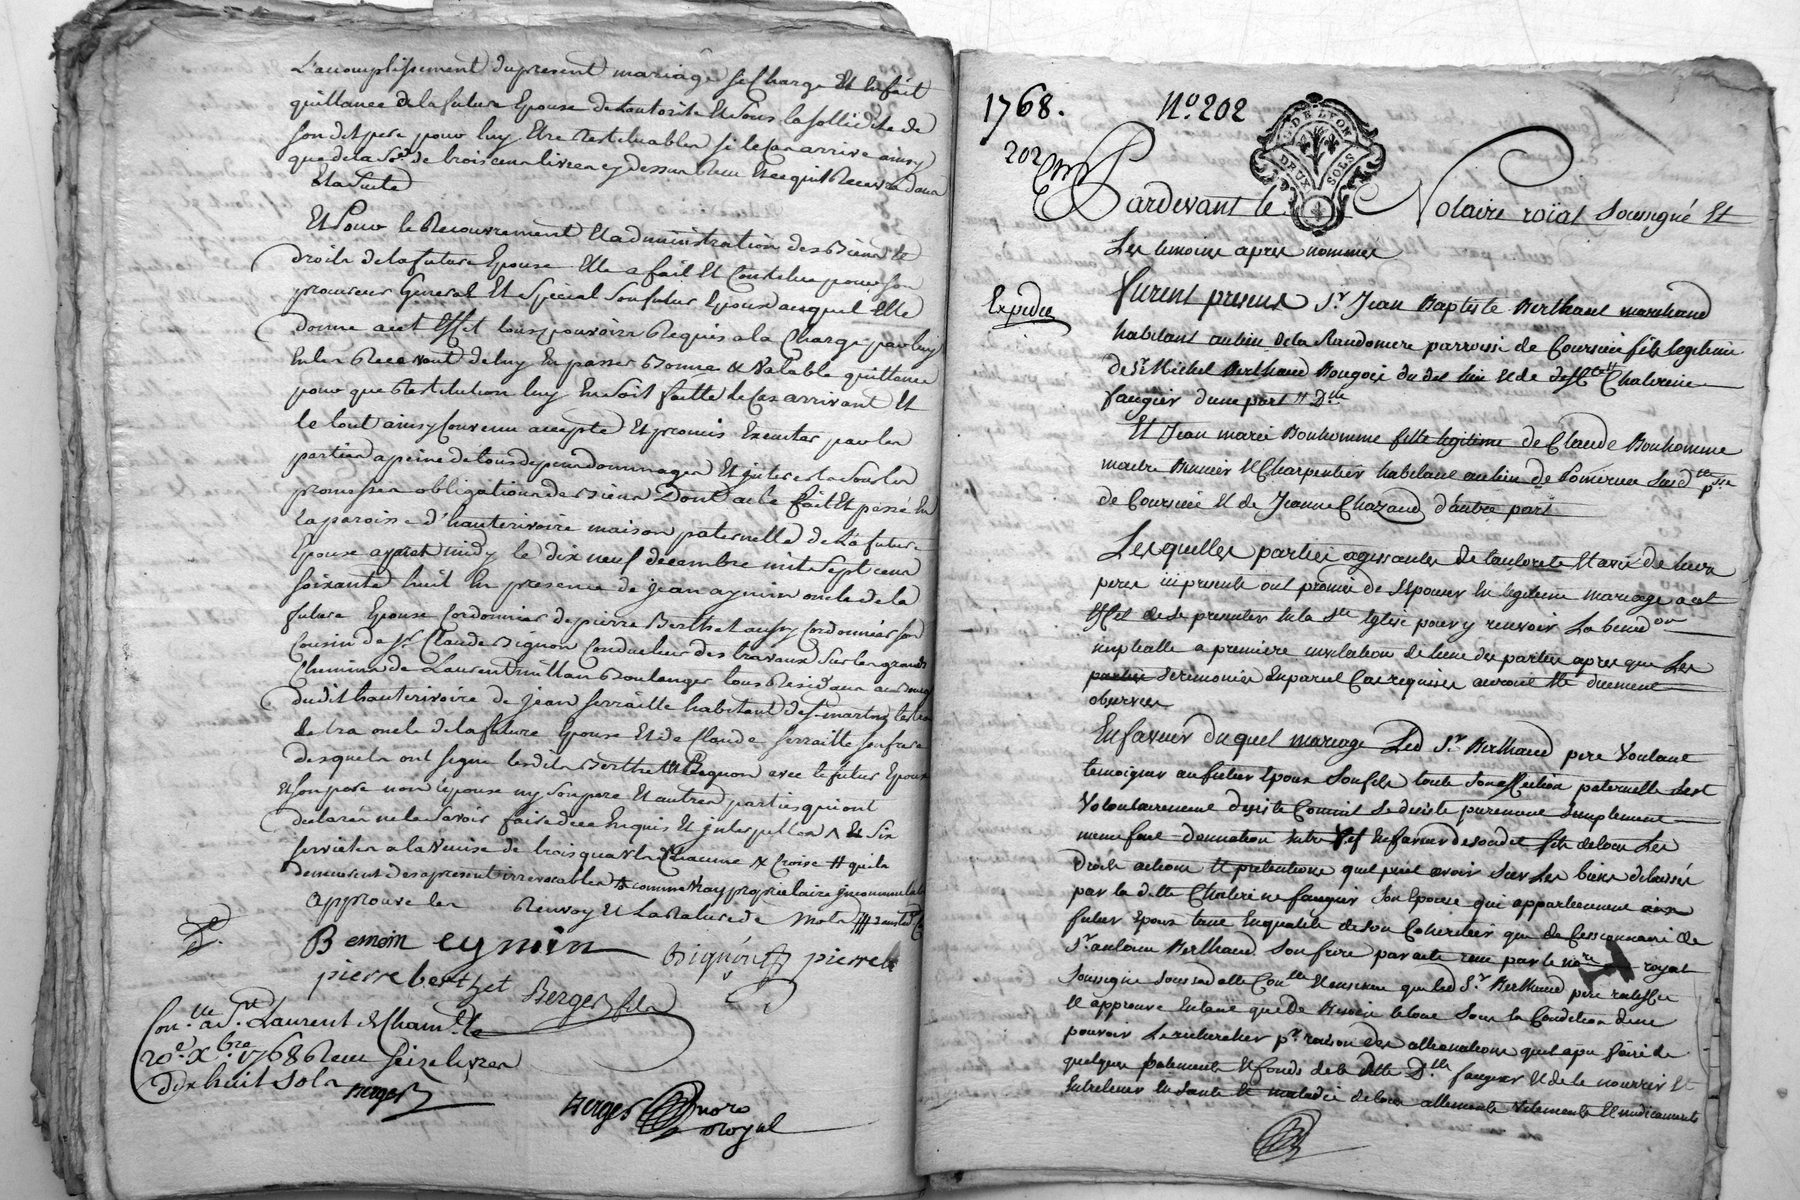 L'accomplissement dupresent mariage se Charge Et En fait
quittance de la future Epouse de Lautorité Et sous la sollidité de
son dit pere pour luy Etre restituables si le Cas arrive ainsy
que de la de trois cens livres cy dessus Et ce quil Recevra dans
Et la suite
Et Pour le Recouvrement Et administration des Biens &
droits de la future Epouse Elle a fait Et Constitue pour son
procureur General Et Special son futur Epoux auquel Elle
donne a cet Effet tous pouvoirs Requis a la Charge par luy
En les Recevant de luy En passer Bonne & Valable quittance
pour que Restitution luy En soit faitte le Cas arrivant Et
le tout ainsy Convenu accepté Et promis Executer par les
parties a peine de tous depens dommages Et interests sous les
promesses obligations de Biens Dont acte fait Et passé En
la paroisse d'hauterivoire maison paternelle de La future
Epouse avant midy le dix neuf decembre mil Sept cens
soixante huit En presence de jean aymin oncle de la
future Epouse Cordonnier de pierre Berthet aussy Cordonnier son
Cousin de Sr. Claude Bignon Conducteur des travaux Sur les grands
Chemins de Laurent millan Boulanger tous Residans au Bourg
dudit hauterivoire de jean ferraille habitant de St martin
oncle de la future Epouse Et de Claude ferraille son frere
desquels ont signe lesdits Berthet Bignon avec le futur Epoux
Et son pere non l'epouse ny son pere Et autres parties qui ont
declarés ne le savoir faire de ce Enquis Et jnterpellés Et six
serviettes a la Venise de trois quarts Chacune X Croise # quils
demeurent des apresent irrevocables & comme Vray proprietaire
approuve les Renvoy Et La Rature de Mots
Bemoin eymin Bignon pierre
pierre berthet Berger fils
Con.lle a St. Laurent de Cham.t le
20e. Xbre 1768 Reçu seize livres
Dix huit sols
Berger
Berger noro
royal
1768. No. 202
G. DE LYON
DEUX SOLS
202
Pardevant le Notaire roïal soussigné Et
Les temoins apres nommés
Expedie
Furent presens Sr. Jean Baptiste Berthaud marchand
habitant au lieu de la Randomere parroisse de Coursieu fils legitime
de Sr. Michel Berthaud Bougois du dit lieu & de Catherine
faugier dune part # Dlle
Et Jean marie Bonhomme fille legitime de Claude Bonhomme
maitre Charpentier habitant au lieu de Pomerieu
de Coursieu & de Jeanne Chazaud d'autre part
Lesquelles parties agissantes de l'autorité Et avis de leurs
peres ici presents ont promis de S'Epouser En legitime mariage a cet
Effet de Se presenter En la Ste Eglise pour y recevoir La bened.on
nuptialle a premiere invitation de lune des parties apres que Les
parties Seremonies En pareil Cas requises auront Ete duement
observees
En faveur duquel mariage Led. Sr. Berthaud pere voulant
temoigner au futur Epoux son fils toute Son affection paternelle Sest
Volontairement purement Simplement
meme fait donnation En faveur de son dit fils de tous Les
droits actions & pretentions quil peut avoir Sur Les biens delaissés
par la ditte Chaterine faugier Son Epouse qui appartiennent
futur Epoux tant En qualité de son Coheritier que de Cessionnaire de
Sr. antoine Berthaud Son frere par acte reçu par le nore royal
Soussigne Sous sa datte Con.lle que led Sr. Berthaud pere ratifie
& approuve Entant que de Besoin Sous la Condition de ne
pouvoir Le rechercher pr. raison des allienations quil a pu faire de
quelques batiments & fonds de la ditte Dlle faugier & de le nourrir Et
Entretenir En Sante Et maladie de tous alliments Vetements Et medicaments